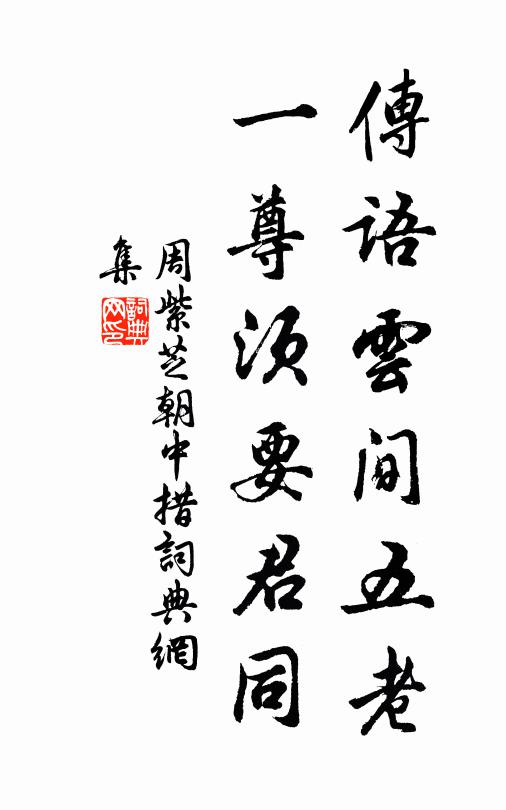 傳語雲間五老
一尊須要君同
周紫芝朝中措詞典網
集
詞典網印